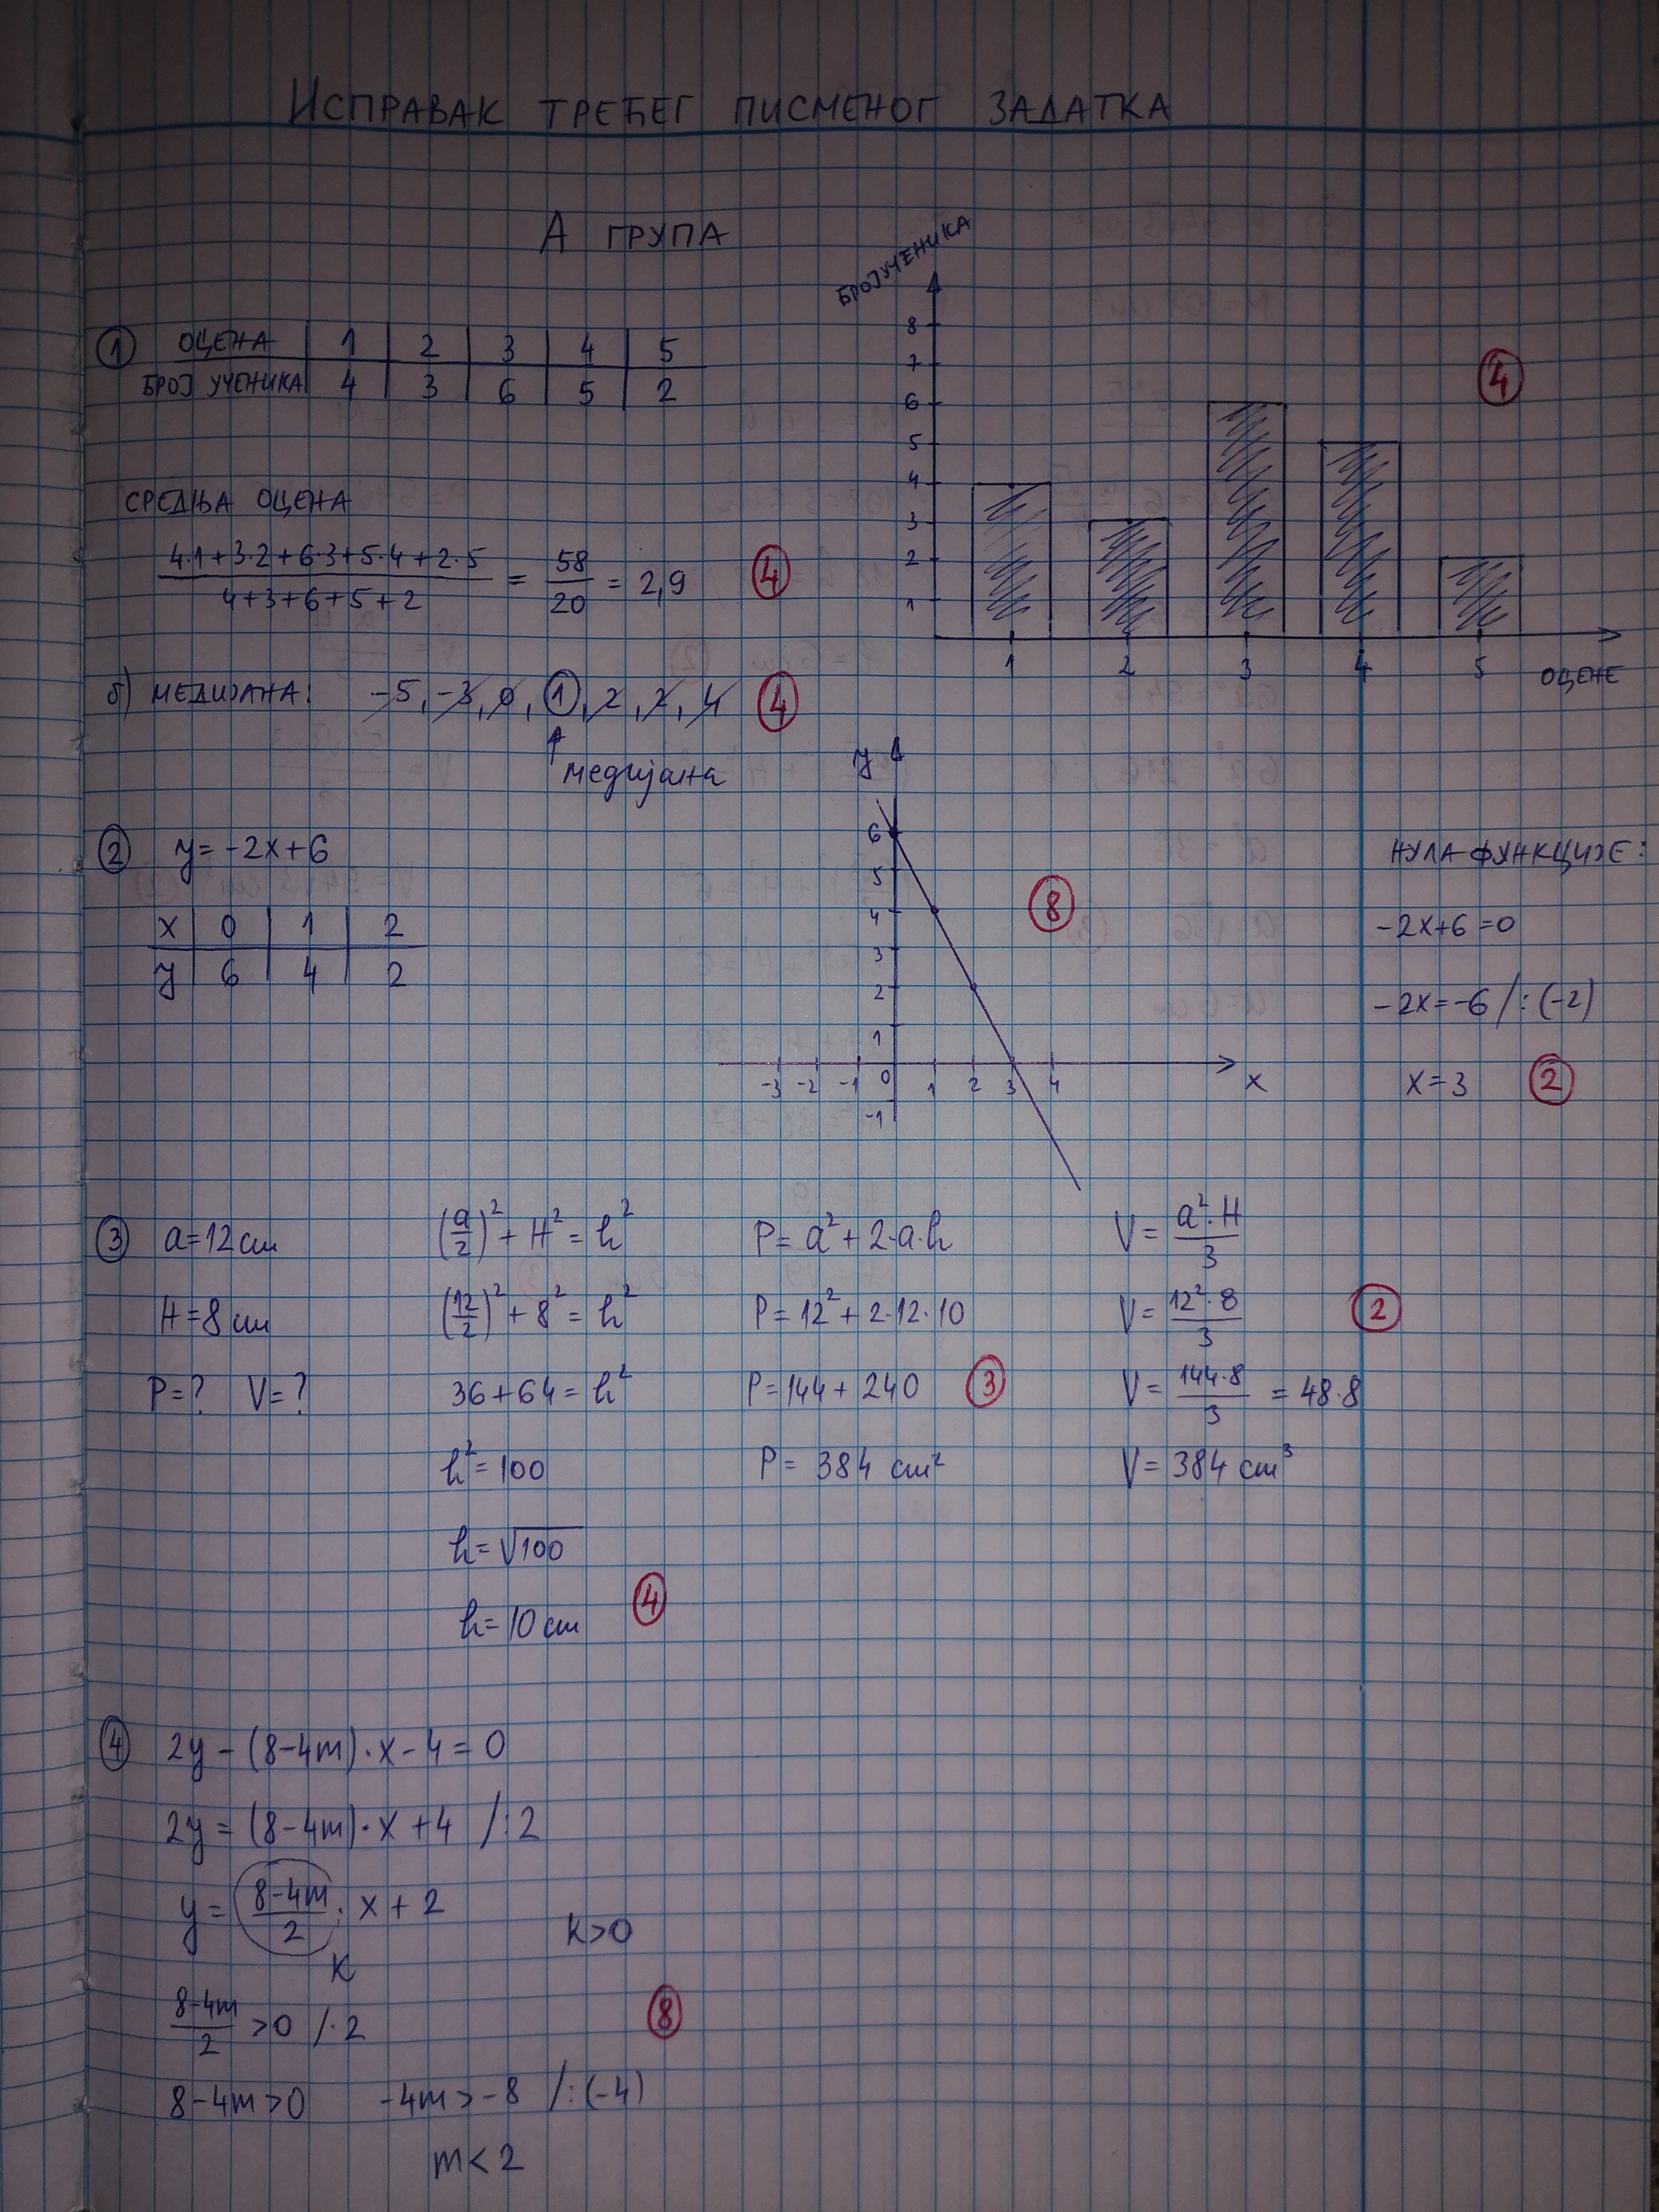 ИСПРАВАК ТРЕЋЕГ ПИСМЕНОГ ЗАДАТКА
А ГРУПА
① ОЦЕНА 1 2 3 4 5
БРОЈ УЧЕНИКА 4 3 6 5 2
СРЕДЊА ОЦЕНА
(4·1+3·2+6·3+5·4+2·5)/(4+3+6+5+2) = 58/20 = 2,9 ④
БРОЈ УЧЕНИКА
8
7
6
5
4
3
2
1
1 2 3 4 5 ОЦЕНЕ
④
б) МЕДИЈАНА: -5, -3, 0, ①, 2, 2, 4 ④
медијана
② y=-2x+6
x 0 1 2
y 6 4 2
y
6
5
4
3
2
1
-3 -2 -1 0 1 2 3 4 x
-1
⑧
НУЛА ФУНКЦИЈЕ:
-2x+6=0
-2x=-6 /:(-2)
x=3 ②
③ a=12cm
H=8cm
P=? V=?
(a/2)² + H² = h²
(12/2)² + 8² = h²
36+64=h²
h²=100
h=√100
h=10cm ④
P=a²+2·a·h
P=12²+2·12·10
P=144+240 ③
P= 384 cm²
V= a²·H/3
V= 12²·8/3 ②
V= 144·8/3 = 48·8
V= 384 cm³
④ 2y-(8-4m)·x-4=0
2y=(8-4m)·x+4 /:2
y= (8-4m)/2 · x+2
K K>0
(8-4m)/2 >0 /·2 ⑧
8-4m>0 -4m>-8 /:(-4)
m<2